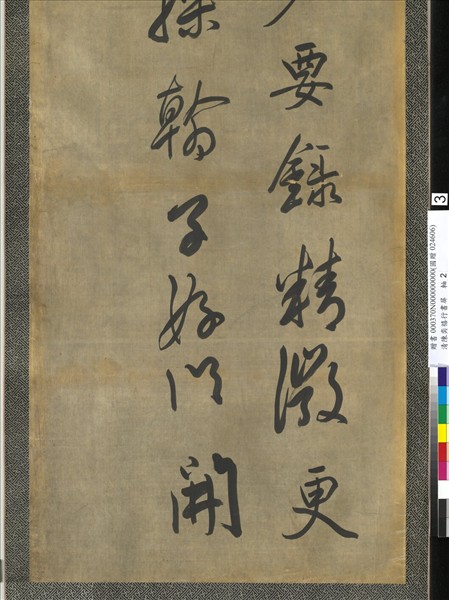 要錄精微更
操翰子好以開
3
贈書 000370N000000000(國贈 024606)
清陳奕禧行書屏 軸 2